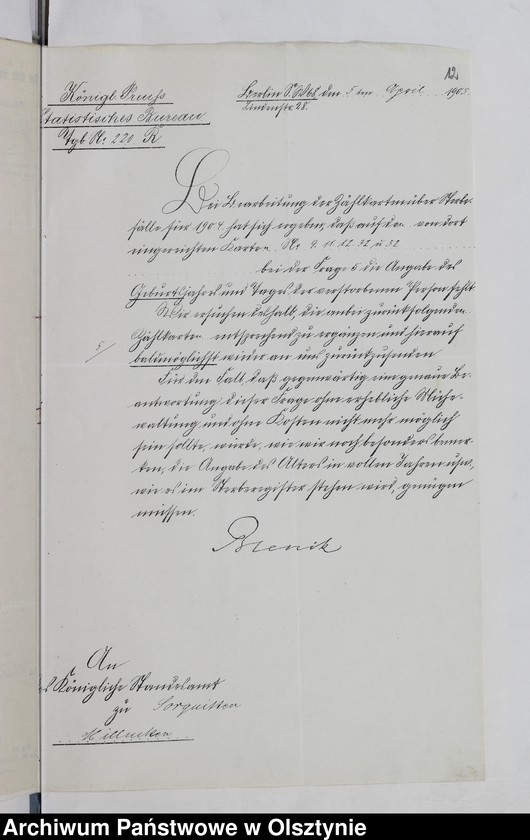 12
Königl. Preuß.
Statistisches Bureau
Tgb. Nr. 220 K
Berlin S.W. 68, den 5ten April 1905
Lindenstr. 28.
Bei Bearbeitung der Zählkarten über Sterbe-
fälle für 1904 hat sich ergeben, daß auf den von dort
eingereichten Karten Nr. 9. 11. 12. 32 u 52
bei der Frage 5 die Angabe des
Geburtsjahres und Tages der verstorbenen Person fehlt.
Wir ersuchen deshalb, die anbei zurückfolgenden
5/
Zählkarten entsprechend zu ergänzen und hierauf
baldmöglichst wieder an uns zurückzusenden
Für den Fall, daß gegenwärtig eine genaue Be-
antwortung dieser Frage ohne erhebliche Mühe-
waltung und ohne Kosten nicht mehr möglich
sein sollte, würde, wie wir noch besonders bemer-
ken, die Angabe des Alters in vollen Jahren usw,
wie es im Sterberegister stehen wird, genügen
müssen.
An
Königliche Standesamt
zu Sorquitten